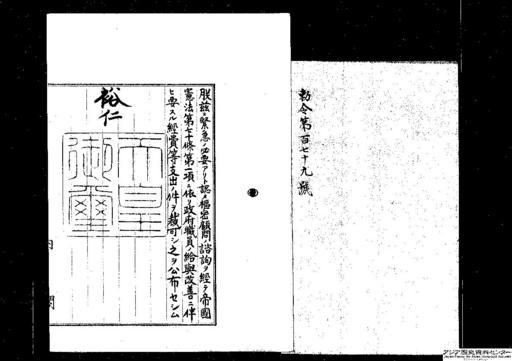 勅令第百七十九號
朕玆ニ緊急ノ必要アリト認メ樞密顧問ノ諮詢ヲ經テ帝國
憲法第七十條第一項ニ依リ政府職員ノ給與改善ニ伴
ヒ要スル經費等支出ノ件ヲ裁可シ之ヲ公布セシム
裕仁
天皇
御璽
内閣
アジア歴史資料センター
Japan Center for Asian Historical Records